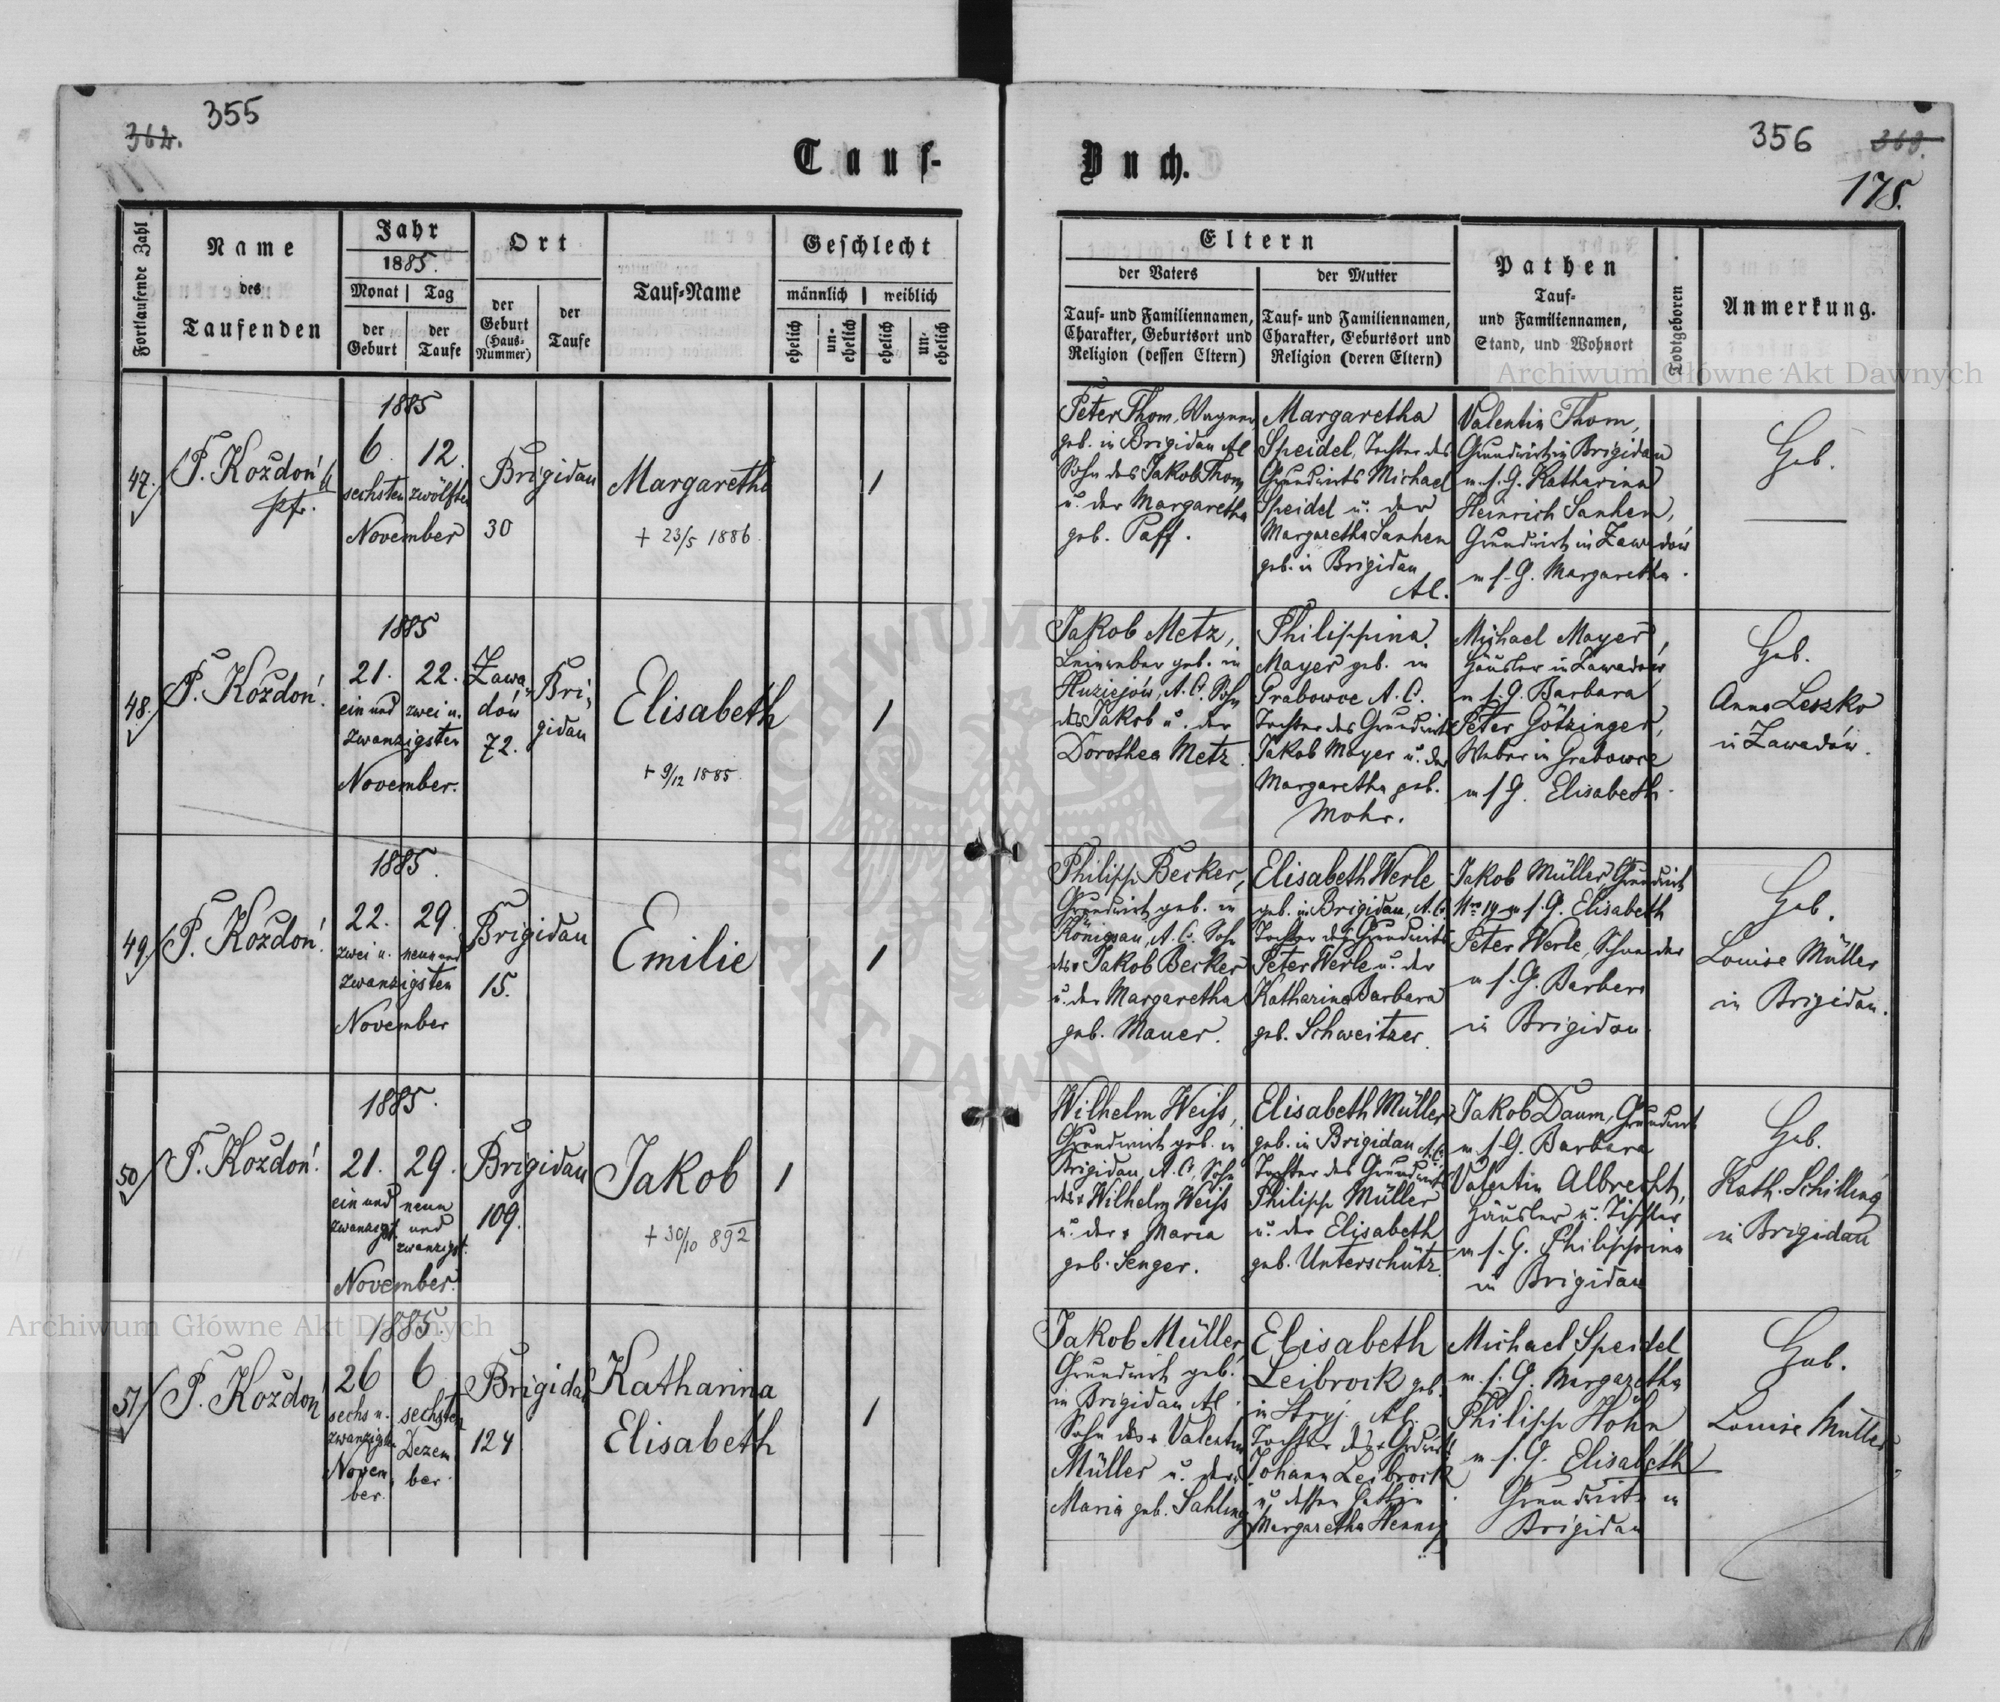 355
362.
Tauf-
Buch.
356
363.
178.
Fortlaufende Zahl
Name
des
Taufenden
Jahr
1885.
Monat
Tag
der
Geburt
der
Taufe
Ort
der
Geburt
(Haus-
Nummer)
der
Taufe
Tauf-Name
Geschlecht
männlich
weiblich
ehelich
un-
ehelich
ehelich
un-
ehelich
Eltern
der Vaters
der Mutter
Tauf- und Familiennamen,
Charakter, Geburtsort und
Religion (dessen Eltern)
Tauf- und Familiennamen,
Charakter, Geburtsort und
Religion (deren Eltern)
Pathen
Tauf-
und Familiennamen,
Stand, und Wohnort
Todtgeboren
Anmerkung.
Archiwum Główne Akt Dawnych
47.
P. Kozdoń
Pfr.
1885
6. 12.
sechsten zwölften
November
Brigidau
30
Margaretha
+ 23/5 1886
1
Peter Thom, Wagner
geb. in Brigidau AC
Sohn des Jakob Thom
u. der Margaretha
geb. Paff.
Margaretha
Speidel, Tochter des
Grundwirts Michael
Speidel u. der
Margaretha Sanhen
geb. in Brigidau
AC.
Valentin Thom,
Grundwirt in Brigidau
m. s. G. Katharina
Heinrich Sanhen,
Grundwirt in Zawadów
m s. G. Margaretha.
Geb.
48.
P. Kozdoń.
1885
21. 22.
ein und zwei u.
zwanzigsten
November.
Zawa-
dów
72.
Bri-
gidau
Elisabeth
+ 9/12 1885.
1
Jakob Metz,
Leinweber geb. in
A. C. Sohn
des Jakob u. der
Dorothea Metz.
Philippina
Mayer geb. in
Grabowce A. C.
Tochter des Grundwirts
Jakob Mayer u. der
Margaretha geb.
Mohr.
Michael Mayer,
Häusler in Zawadów
m s. G. Barbara
Peter Götzinger,
Weber in Grabowce
m s G. Elisabeth.
Geb.
Anna Leszko
in Zawadów.
49.
P. Kozdoń.
1885.
22. 29.
zwei u. neun und
zwanzigsten
November
Brigidau
15.
Emilie
1
Philipp Becker,
Grundwirt geb. in
Königsau, A. C. Sohn
des Jakob Becker
u. der Margaretha
geb. Mauer.
Elisabeth Werle
geb. in Brigidau, A. C.
Tochter des Grundwirts
Peter Werle u. der
Katharina Barbara
geb. Schweitzer.
Jakob Müller, Grundwirt
Nro 19 m s. G. Elisabeth
Peter Werle, Schneider
m s. G. Barbara
in Brigidau.
Geb.
Louise Müller
in Brigidau.
50.
P. Kozdoń.
1885.
21. 29.
ein und neun
zwanzigst. und
zwanzigst.
November.
Brigidau
109.
Jakob
+ 30/10 892
1
Wilhelm Weiss,
Grundwirt geb. in
Brigidau, A. C. Sohn
des Wilhelm Weiss
u. der Maria
geb. Senger.
Elisabeth Müller
geb. in Brigidau A. C.
Tochter des Grundwirts
Philipp Müller
u. der Elisabeth
geb. Unterschütz.
Jakob Daum, Grundwirt
m. s. G. Barbara
Valentin Albrecht,
Häusler u. Tischler
m s. G. Philippina
in Brigidau
Geb.
Kath. Schilling
in Brigidau
51.
P. Kozdoń
1885.
26 6.
sechs u. sechsten
zwanzigsten Dezem
Novem ber.
ber.
Brigidau
124
Katharina
Elisabeth
1
Jakob Müller,
Grundwirt geb.
in Brigidau AC.
Sohn des Valentin
Müller u. der
Maria geb. Sahling
Elisabeth
Leibrock geb.
in Stryj. AC.
Tochter des Grdwirts
Johann Leibrock
u. dessen Gattin
Margaretha Hennig
Michael Speidel
m. s. G. Margaretha
Philipp Höhn
m s. G. Elisabeth
Grundwirte in
Brigidau
Geb.
Louise Müller
Archiwum Główne Akt Dawnych
ARCHIWUM
AKT DAWN